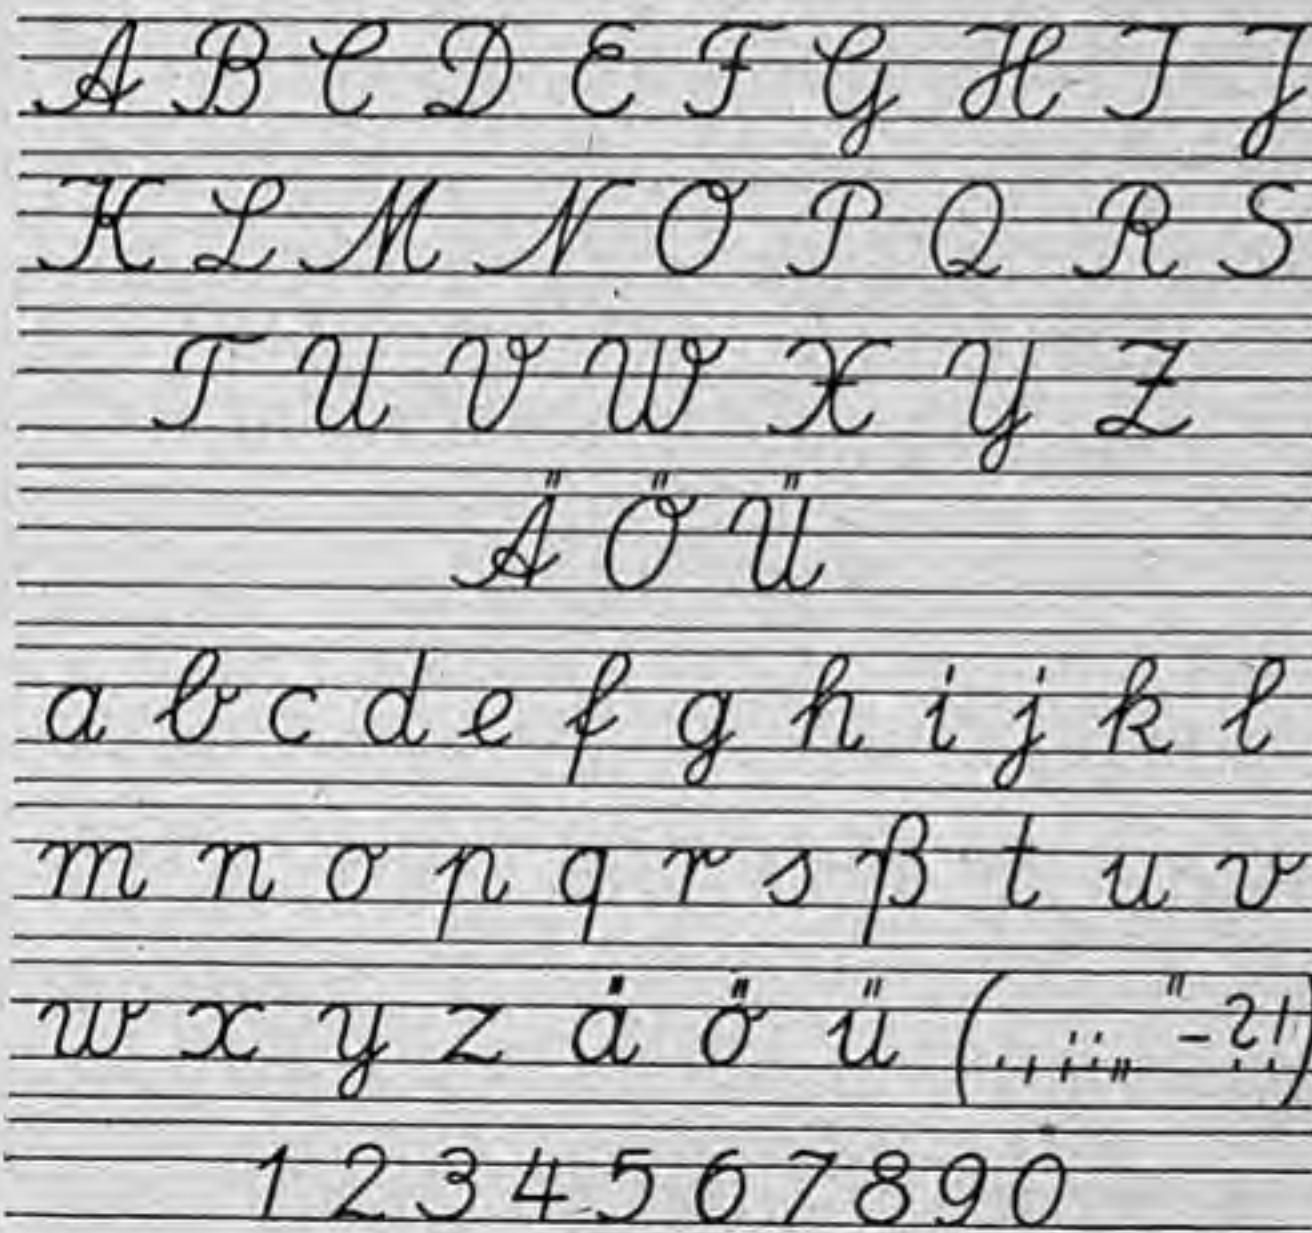 A B C D E F G H I J
K L M N O P Q R S
T U V W X Y Z
Ä Ö Ü
a b c d e f g h i j k l
m n o p q r s ß t u v
w x y z ä ö ü ( . , ; : „ “ - ? ! )
1 2 3 4 5 6 7 8 9 0